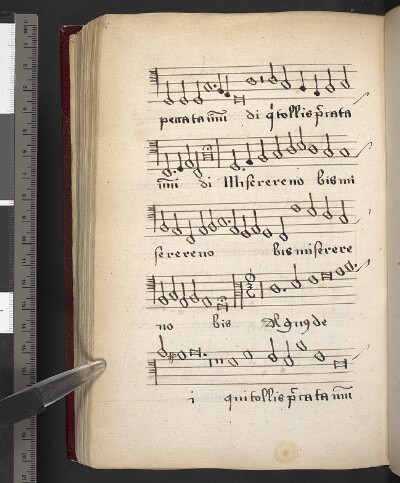 peccata mundi di q tollis pccata
mundi di Miserere no bis mi
serere no bis miserere
no bis Agnus de
i qui tollis pccata mundi